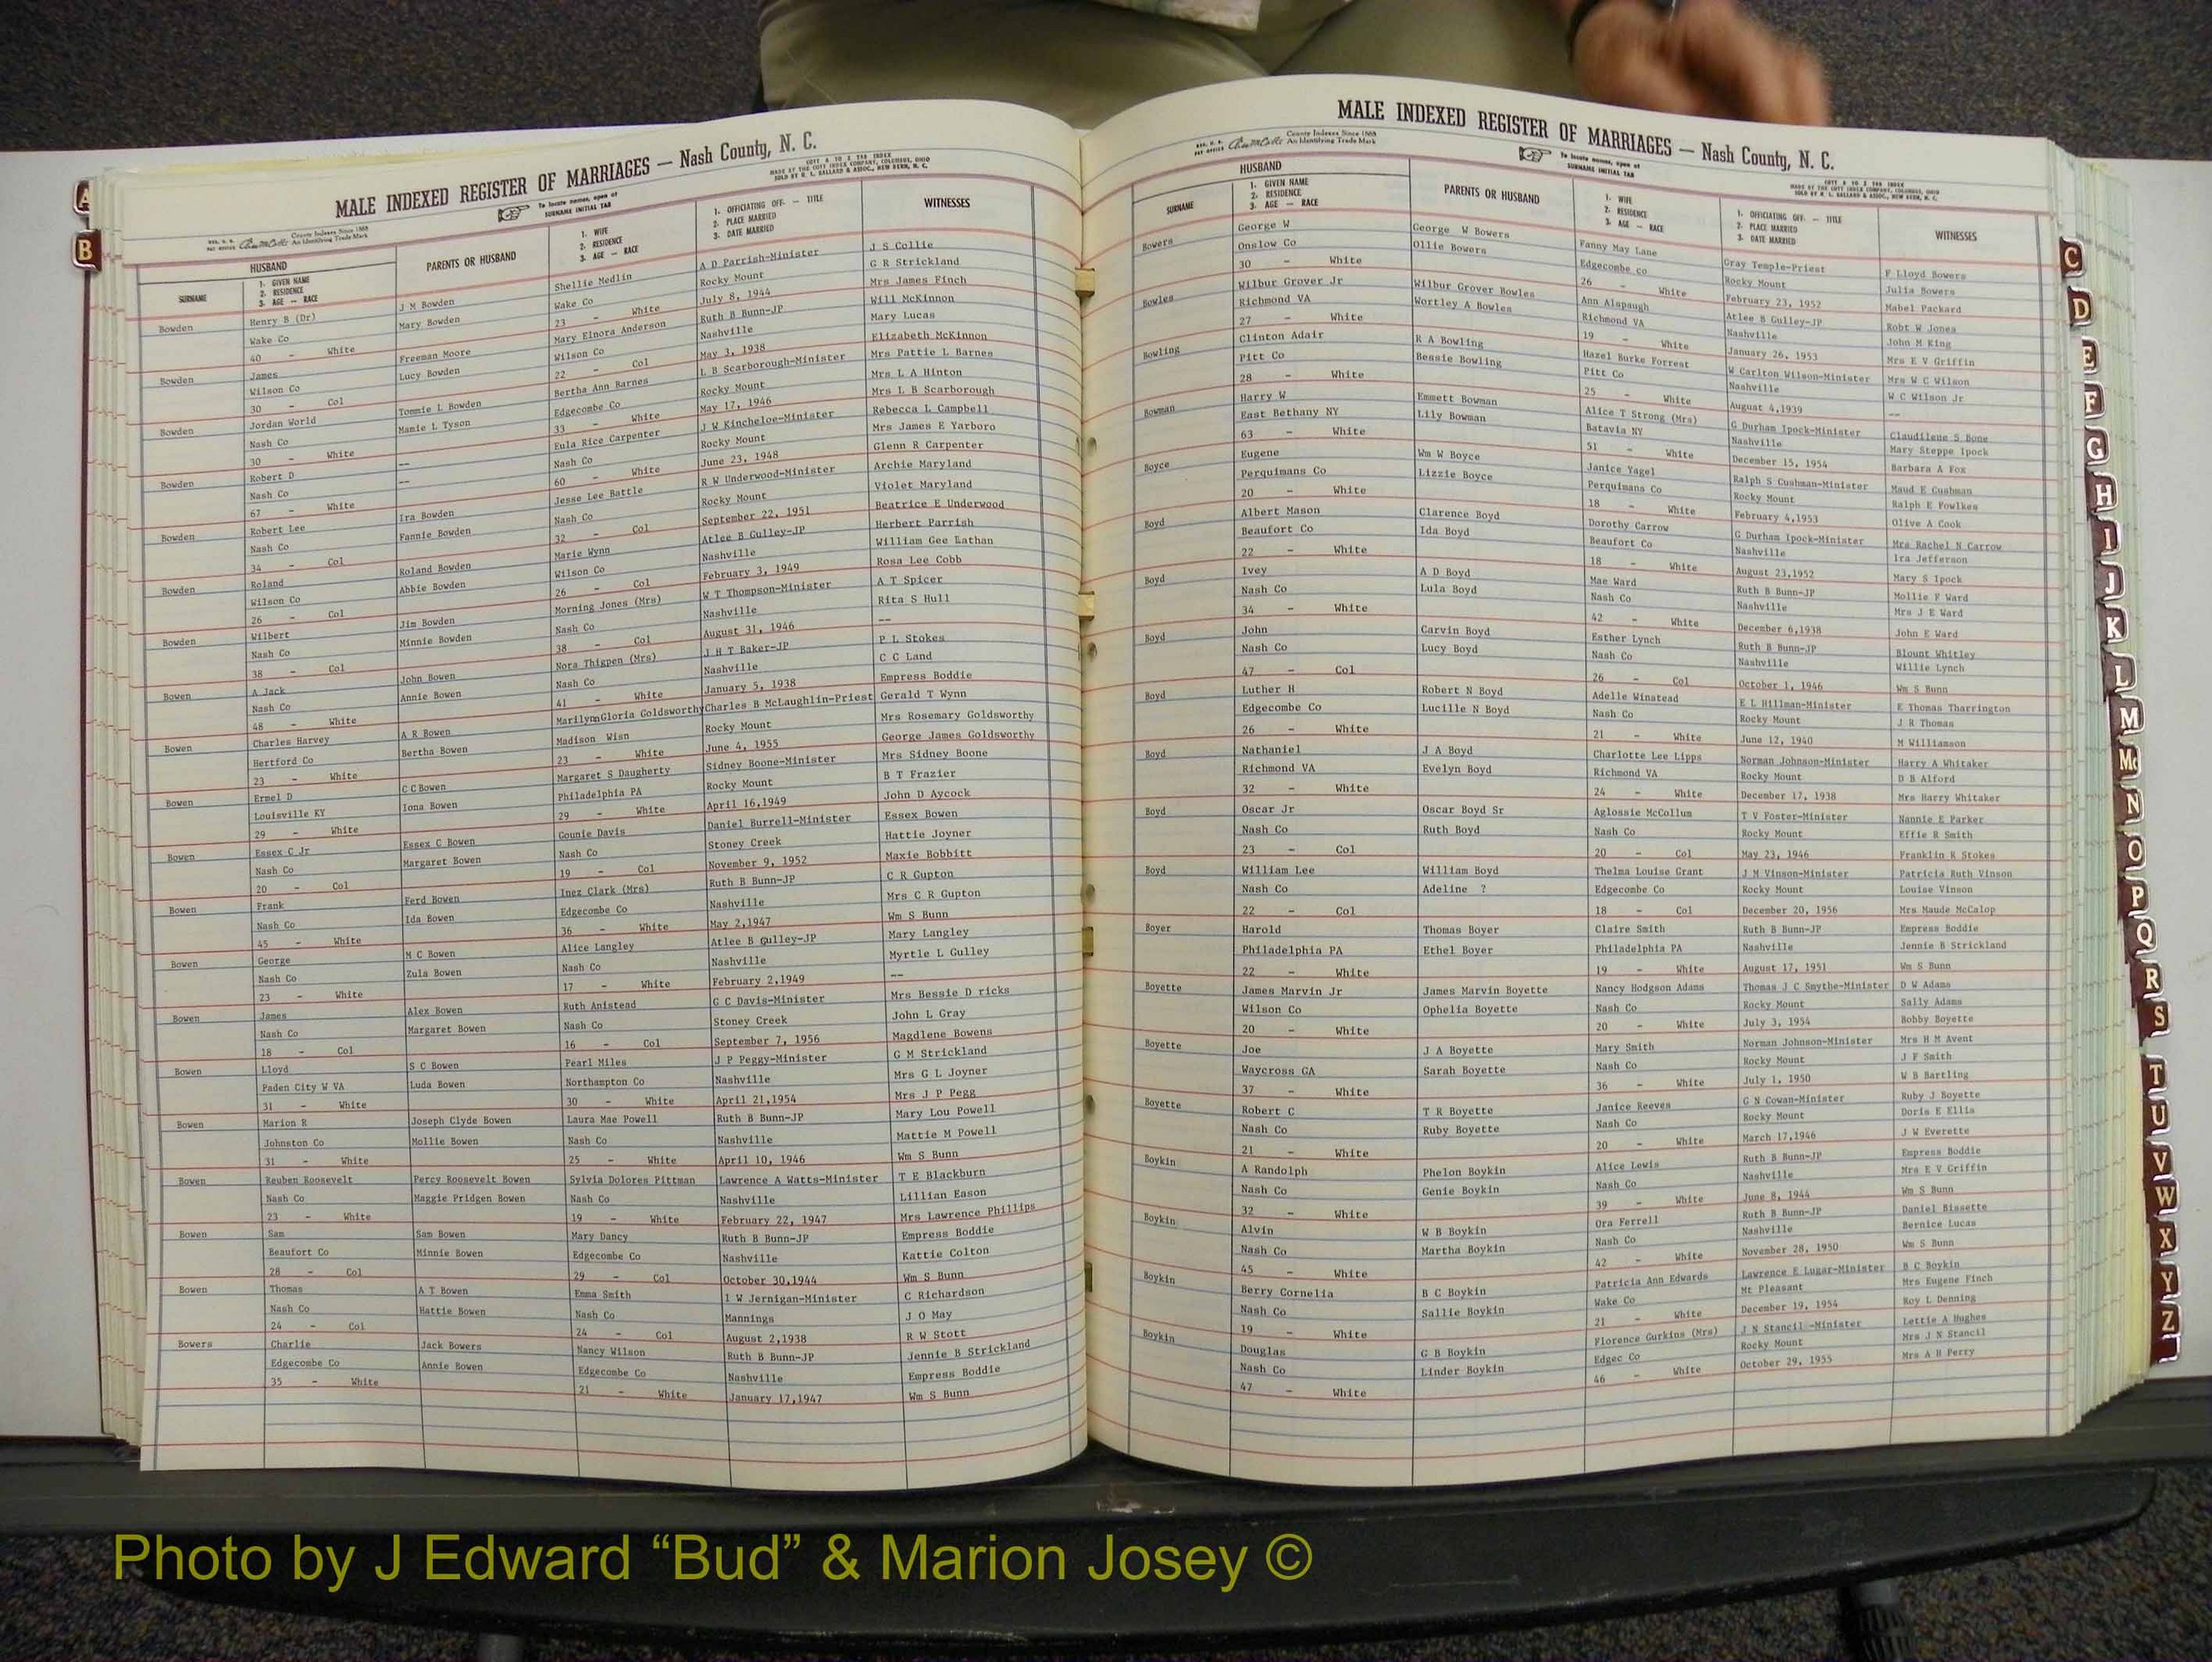 MALE INDEXED REGISTER OF MARRIAGES — Nash County, N. C.
County Indexes Since 1888
An Identifying Trade Mark
To locate names, open at
SURNAME INITIAL TAB
COTT A TO Z TAB INDEX
MADE BY THE COTT INDEX COMPANY, COLUMBUS, OHIO
SOLD BY R. L. BALLARD & ASSOC., NEW BERN, N. C.
HUSBAND
SURNAME
1. GIVEN NAME
2. RESIDENCE
3. AGE — RACE
PARENTS OR HUSBAND
1. WIFE
2. RESIDENCE
3. AGE — RACE
1. OFFICIATING OFF. — TITLE
2. PLACE MARRIED
3. DATE MARRIED
WITNESSES
Bowden Henry B (Dr) J M Bowden Shellie Medlin A D Parrish-Minister J S Collie
Wake Co Mary Bowden Wake Co Rocky Mount G R Strickland
40 - White 23 - White July 8, 1944 Mrs James Finch
Bowden James Freeman Moore Mary Elnora Anderson Ruth B Bunn-JP Will McKinnon
Wilson Co Lucy Bowden Wilson Co Nashville Mary Lucas
30 - Col 22 - Col May 3, 1938 Elizabeth McKinnon
Bowden Jordan World Tommie L Bowden Bertha Ann Barnes L B Scarborough-Minister Mrs Pattie L Barnes
Nash Co Mamie L Tyson Edgecombe Co Rocky Mount Mrs L A Hinton
30 - White 33 - White May 17, 1946 Mrs L B Scarborough
Bowden Robert D -- Eula Rice Carpenter J W Kincheloe-Minister Rebecca L Campbell
Nash Co -- Nash Co Rocky Mount Mrs James E Yarboro
67 - White 60 - White June 23, 1948 Glenn R Carpenter
Bowden Robert Lee Ira Bowden Jesse Lee Battle R W Underwood-Minister Archie Maryland
Nash Co Fannie Bowden Nash Co Rocky Mount Violet Maryland
34 - Col 32 - Col September 22, 1951 Beatrice E Underwood
Bowden Roland Roland Bowden Marie Wynn Atlee B Gulley-JP Herbert Parrish
Wilson Co Abbie Bowden Wilson Co Nashville William Gee Lathan
26 - Col 26 - Col February 3, 1949 Rosa Lee Cobb
Bowden Wilbert Jim Bowden Morning Jones (Mrs) W T Thompson-Minister A T Spicer
Nash Co Minnie Bowden Nash Co Nashville Rita S Hull
38 - Col 38 - Col August 31, 1946 --
Bowen A Jack John Bowen Nora Thigpen (Mrs) J H T Baker-JP P L Stokes
Nash Co Annie Bowen Nash Co Nashville C C Land
48 - White 41 - White January 5, 1938 Empress Boddie
Bowen Charles Harvey A R Bowen MarilynnGloria Goldsworthy Charles B McLaughlin-Priest Gerald T Wynn
Hertford Co Bertha Bowen Madison Wisn Rocky Mount Mrs Rosemary Goldsworthy
23 - White 23 - White June 4, 1955 George James Goldsworthy
Bowen Ermel D C C Bowen Margaret S Daugherty Sidney Boone-Minister Mrs Sidney Boone
Louisville KY Iona Bowen Philadelphia PA Rocky Mount B T Frazier
29 - White 29 - White April 16,1949 John D Aycock
Bowen Essex C Jr Essex C Bowen Gounie Davis Daniel Burrell-Minister Essex Bowen
Nash Co Margaret Bowen Nash Co Stoney Creek Hattie Joyner
20 - Col 19 - Col November 9, 1952 Maxie Bobbitt
Bowen Frank Ferd Bowen Inez Clark (Mrs) Ruth B Bunn-JP C R Gupton
Nash Co Ida Bowen Edgecombe Co Nashville Mrs C R Gupton
45 - White 36 - White May 2,1947 Wm S Bunn
Bowen George M C Bowen Alice Langley Atlee B gulley-JP Mary Langley
Nash Co Zula Bowen Nash Co Nashville Myrtle L Gulley
23 - White 17 - White February 2,1949 --
Bowen James Alex Bowen Ruth Anistead G C Davis-Minister Mrs Bessie D ricks
Nash Co Margaret Bowen Nash Co Stoney Creek John L Gray
18 - Col 16 - Col September 7, 1956 Magdlene Bowens
Bowen Lloyd S C Bowen Pearl Miles J P Peggy-Minister G M Strickland
Paden City W VA Luda Bowen Northampton Co Nashville Mrs G L Joyner
31 - White 30 - White April 21,1954 Mrs J P Pegg
Bowen Marion R Joseph Clyde Bowen Laura Mae Powell Ruth B Bunn-JP Mary Lou Powell
Johnston Co Mollie Bowen Nash Co Nashville Mattie M Powell
31 - White 25 - White April 10, 1946 Wm S Bunn
Bowen Reuben Roosevelt Percy Roosevelt Bowen Sylvia Dolores Pittman Lawrence A Watts-Minister T E Blackburn
Nash Co Maggie Pridgen Bowen Nash Co Nashville Lillian Eason
23 - White 19 - White February 22, 1947 Mrs Lawrence Phillips
Bowen Sam Sam Bowen Mary Dancy Ruth B Bunn-JP Empress Boddie
Beaufort Co Minnie Bowen Edgecombe Co Nashville Kattie Colton
28 - Col 29 - Col October 30,1944 Wm S Bunn
Bowen Thomas A T Bowen Emma Smith I W Jernigan-Minister C Richardson
Nash Co Hattie Bowen Nash Co Mannings J O May
24 - Col 24 - Col August 2,1938 R W Stott
Bowers Charlie Jack Bowers Nancy Wilson Ruth B Bunn-JP Jennie B Strickland
Edgecombe Co Annie Bowen Edgecombe Co Nashville Empress Boddie
35 - White 21 - White January 17,1947 Wm S Bunn
MALE INDEXED REGISTER OF MARRIAGES — Nash County, N. C.
County Indexes Since 1888
An Identifying Trade Mark
To locate names, open at
SURNAME INITIAL TAB
COTT A TO Z TAB INDEX
MADE BY THE COTT INDEX COMPANY, COLUMBUS, OHIO
SOLD BY R. L. BALLARD & ASSOC., NEW BERN, N. C.
HUSBAND
SURNAME
1. GIVEN NAME
2. RESIDENCE
3. AGE — RACE
PARENTS OR HUSBAND
1. WIFE
2. RESIDENCE
3. AGE — RACE
1. OFFICIATING OFF. — TITLE
2. PLACE MARRIED
3. DATE MARRIED
WITNESSES
Bowers George W George W Bowers Fanny May Lane Gray Temple-Priest F Lloyd Bowers
Onslow Co Ollie Bowers Edgecombe co Rocky Mount Julia Bowers
30 - White 26 - White February 23, 1952 Mabel Packard
Bowles Wilbur Grover Jr Wilbur Grover Bowles Ann Alspaugh Atlee B Gulley-JP Robt W Jones
Richmond VA Wortley A Bowles Richmond VA Nashville John M King
27 - White 19 - White January 26, 1953 Mrs E V Griffin
Bowling Clinton Adair R A Bowling Hazel Burke Forrest W Carlton Wilson-Minister Mrs W C Wilson
Pitt Co Bessie Bowling Pitt Co Nashville W C Wilson Jr
28 - White 25 - White August 4,1939 --
Bowman Harry W Emmett Bowman Alice T Strong (Mrs) G Durham Ipock-Minister Claudilene S Bone
East Bethany NY Lily Bowman Batavia NY Nashville Mary Steppe Ipock
63 - White 51 - White December 15, 1954 Barbara A Fox
Boyce Eugene Wm W Boyce Janice Yagel Ralph S Cushman-Minister Maud E Cushman
Perquimans Co Lizzie Boyce Perquimans Co Rocky Mount Ralph E Fowlkes
20 - White 18 - White February 4,1953 Olive A Cook
Boyd Albert Mason Clarence Boyd Dorothy Carrow G Durham Ipock-Minister Mrs Rachel N Carrow
Beaufort Co Ida Boyd Beaufort Co Nashville Ira Jefferson
22 - White 18 - White August 23,1952 Mary S Ipock
Boyd Ivey A D Boyd Mae Ward Ruth B Bunn-JP Mollie F Ward
Nash Co Lula Boyd Nash Co Nashville Mrs J E Ward
34 - White 42 - White December 6,1938 John E Ward
Boyd John Carvin Boyd Esther Lynch Ruth B Bunn-JP Blount Whitley
Nash Co Lucy Boyd Nash Co Nashville Willie Lynch
47 - Col 26 - Col October 1, 1946 Wm S Bunn
Boyd Luther H Robert N Boyd Adelle Winstead E L Hillman-Minister E Thomas Tharrington
Edgecombe Co Lucille N Boyd Nash Co Rocky Mount J R Thomas
26 - White 21 - White June 12, 1940 M Williamson
Boyd Nathaniel J A Boyd Charlotte Lee Lipps Norman Johnson-Minister Harry A Whitaker
Richmond VA Evelyn Boyd Richmond VA Rocky Mount D B Alford
32 - White 24 - White December 17, 1938 Mrs Harry Whitaker
Boyd Oscar Jr Oscar Boyd Sr Aglossie McCollum T V Foster-Minister Nannie E Parker
Nash Co Ruth Boyd Nash Co Rocky Mount Effie R Smith
23 - Col 20 - Col May 23, 1946 Franklin R Stokes
Boyd William Lee William Boyd Thelma Louise Grant J M Vinson-Minister Patricia Ruth Vinson
Nash Co Adeline ? Edgecombe Co Rocky Mount Louise Vinson
22 - Col 18 - Col December 20, 1956 Mrs Maude McCalop
Boyer Harold Thomas Boyer Claire Smith Ruth B Bunn-JP Empress Boddie
Philadelphia PA Ethel Boyer Philadelphia PA Nashville Jennie B Strickland
22 - White 19 - White August 17, 1951 Wm S Bunn
Boyette James Marvin Jr James Marvin Boyette Nancy Hodgson Adams Thomas J C Smythe-Minister D W Adams
Wilson Co Ophelia Boyette Nash Co Rocky Mount Sally Adams
20 - White 20 - White July 3, 1954 Bobby Boyette
Boyette Joe J A Boyette Mary Smith Norman Johnson-Minister Mrs H M Avent
Waycross GA Sarah Boyette Nash Co Rocky Mount J F Smith
37 - White 36 - White July 1, 1950 W B Bartling
Boyette Robert C T R Boyette Janice Reeves G N Cowan-Minister Ruby J Boyette
Nash Co Ruby Boyette Nash Co Rocky Mount Doris E Ellis
21 - White 20 - White March 17,1946 J W Everette
Boykin A Randolph Phelon Boykin Alice Lewis Ruth B Bunn-JP Empress Boddie
Nash Co Genie Boykin Nash Co Nashville Mrs E V Griffin
32 - White 39 - White June 8, 1944 Wm S Bunn
Boykin Alvin W B Boykin Ora Ferrell Ruth B Bunn-JP Daniel Bissette
Nash Co Martha Boykin Nash Co Nashville Bernice Lucas
45 - White 42 - White November 28, 1950 Wm S Bunn
Boykin Berry Cornelia B C Boykin Patricia Ann Edwards Lawrence E Lugar-Minister B C Boykin
Nash Co Sallie Boykin Wake Co Mt Pleasant Mrs Eugene Finch
19 - White 21 - White December 19, 1954 Roy L Denning
Boykin Douglas G B Boykin Florence Gurkins (Mrs) J N Stancil-Minister Lettie A Hughes
Nash Co Linder Boykin Edgec Co Rocky Mount Mrs J N Stancil
47 - White 46 - White October 29, 1955 Mrs A H Perry
A
B
C
D
E
F
G
H
I
J
K
L
M
Mc
N
O
P
Q
R
S
T
U
V
W
X
Y
Z
Photo by J Edward “Bud” & Marion Josey ©